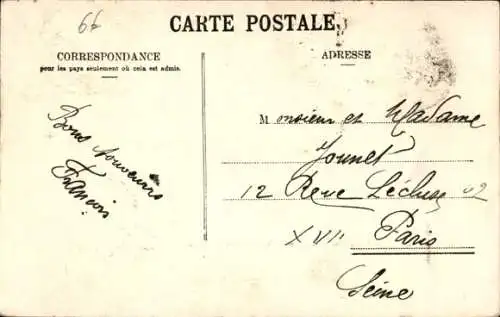 66
CARTE POSTALE
CORRESPONDANCE
pour les pays seulement où cela est admis.
ADRESSE
Bons souvenirs
François
Monsieur et Madame
Jounet
12 Rue Lécluse 12
XVII Paris
Seine